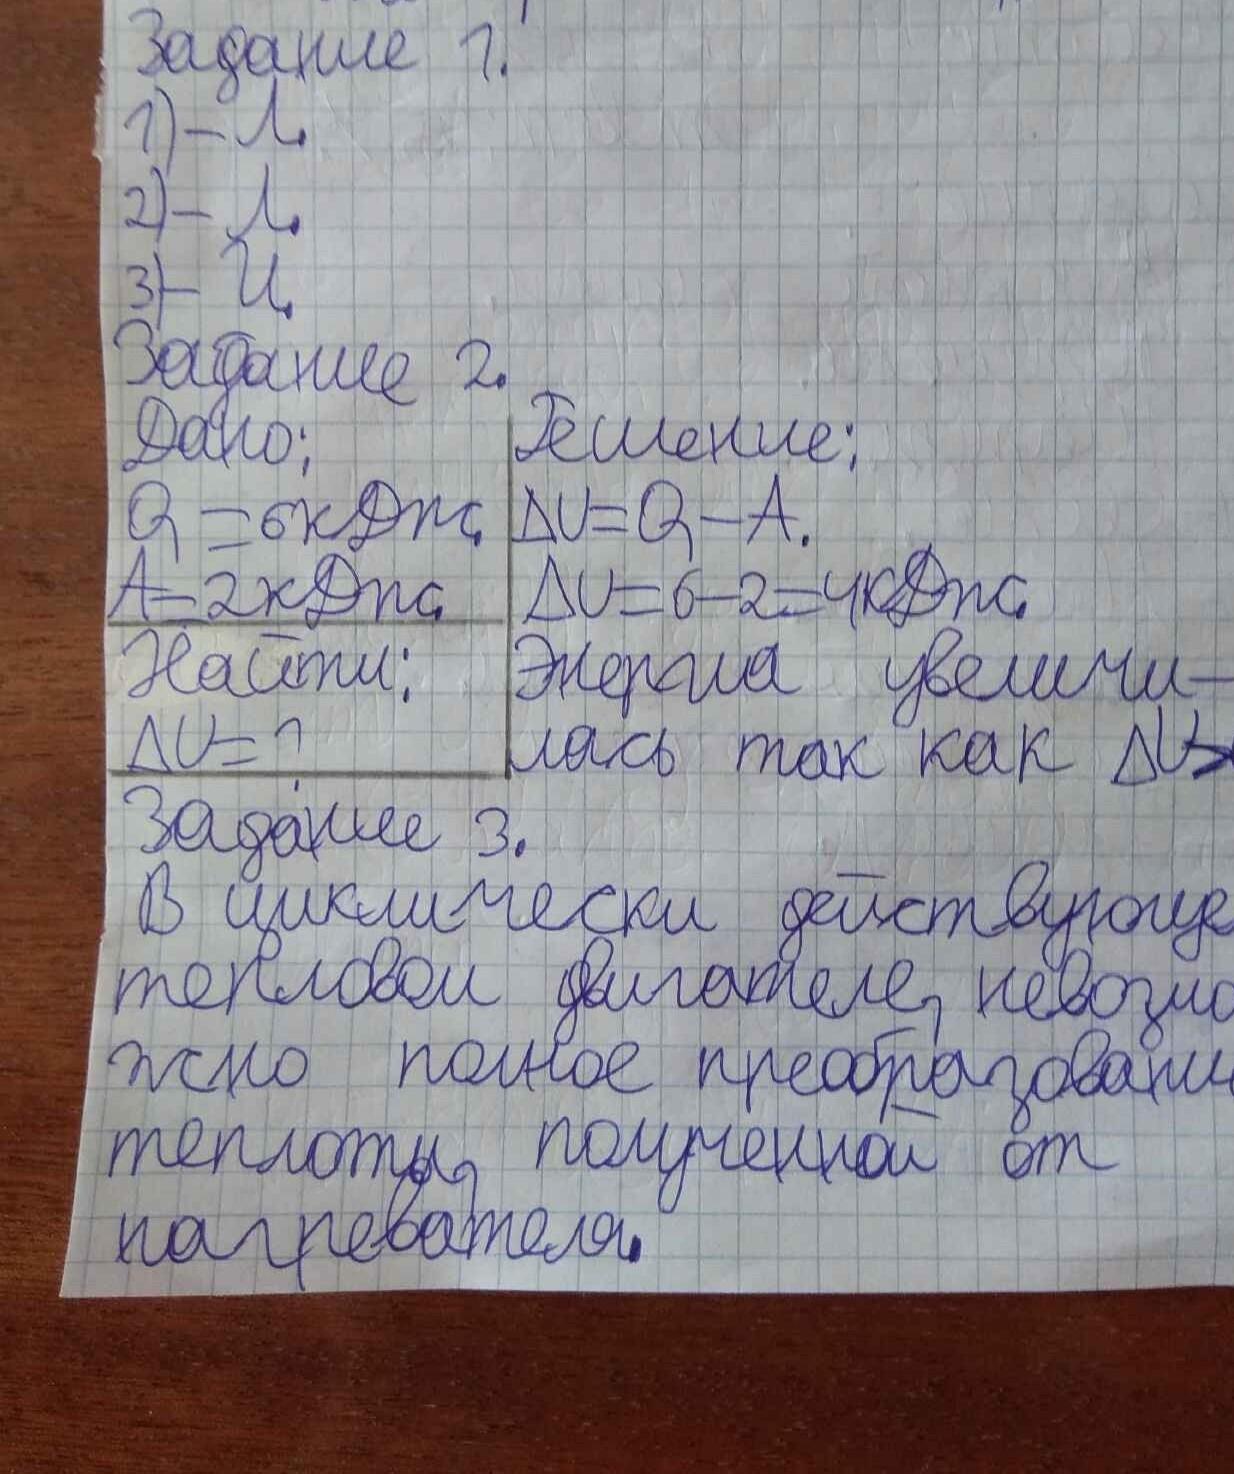 Задание 1.
1) – Л.
2) – Л.
3) – И.
Задание 2.
Дано:
Q = 6 кДж.
A = 2 кДж.
Найти:
ΔU = ?
Решение:
ΔU = Q – A.
ΔU = 6 – 2 = 4 кДж.
Энергия увеличи–
лась так как ΔU>
Задание 3.
В циклически действующе
тепловом двигателе, невозмо
жно полное преобразование
теплоты, полученной от
нагревателя.